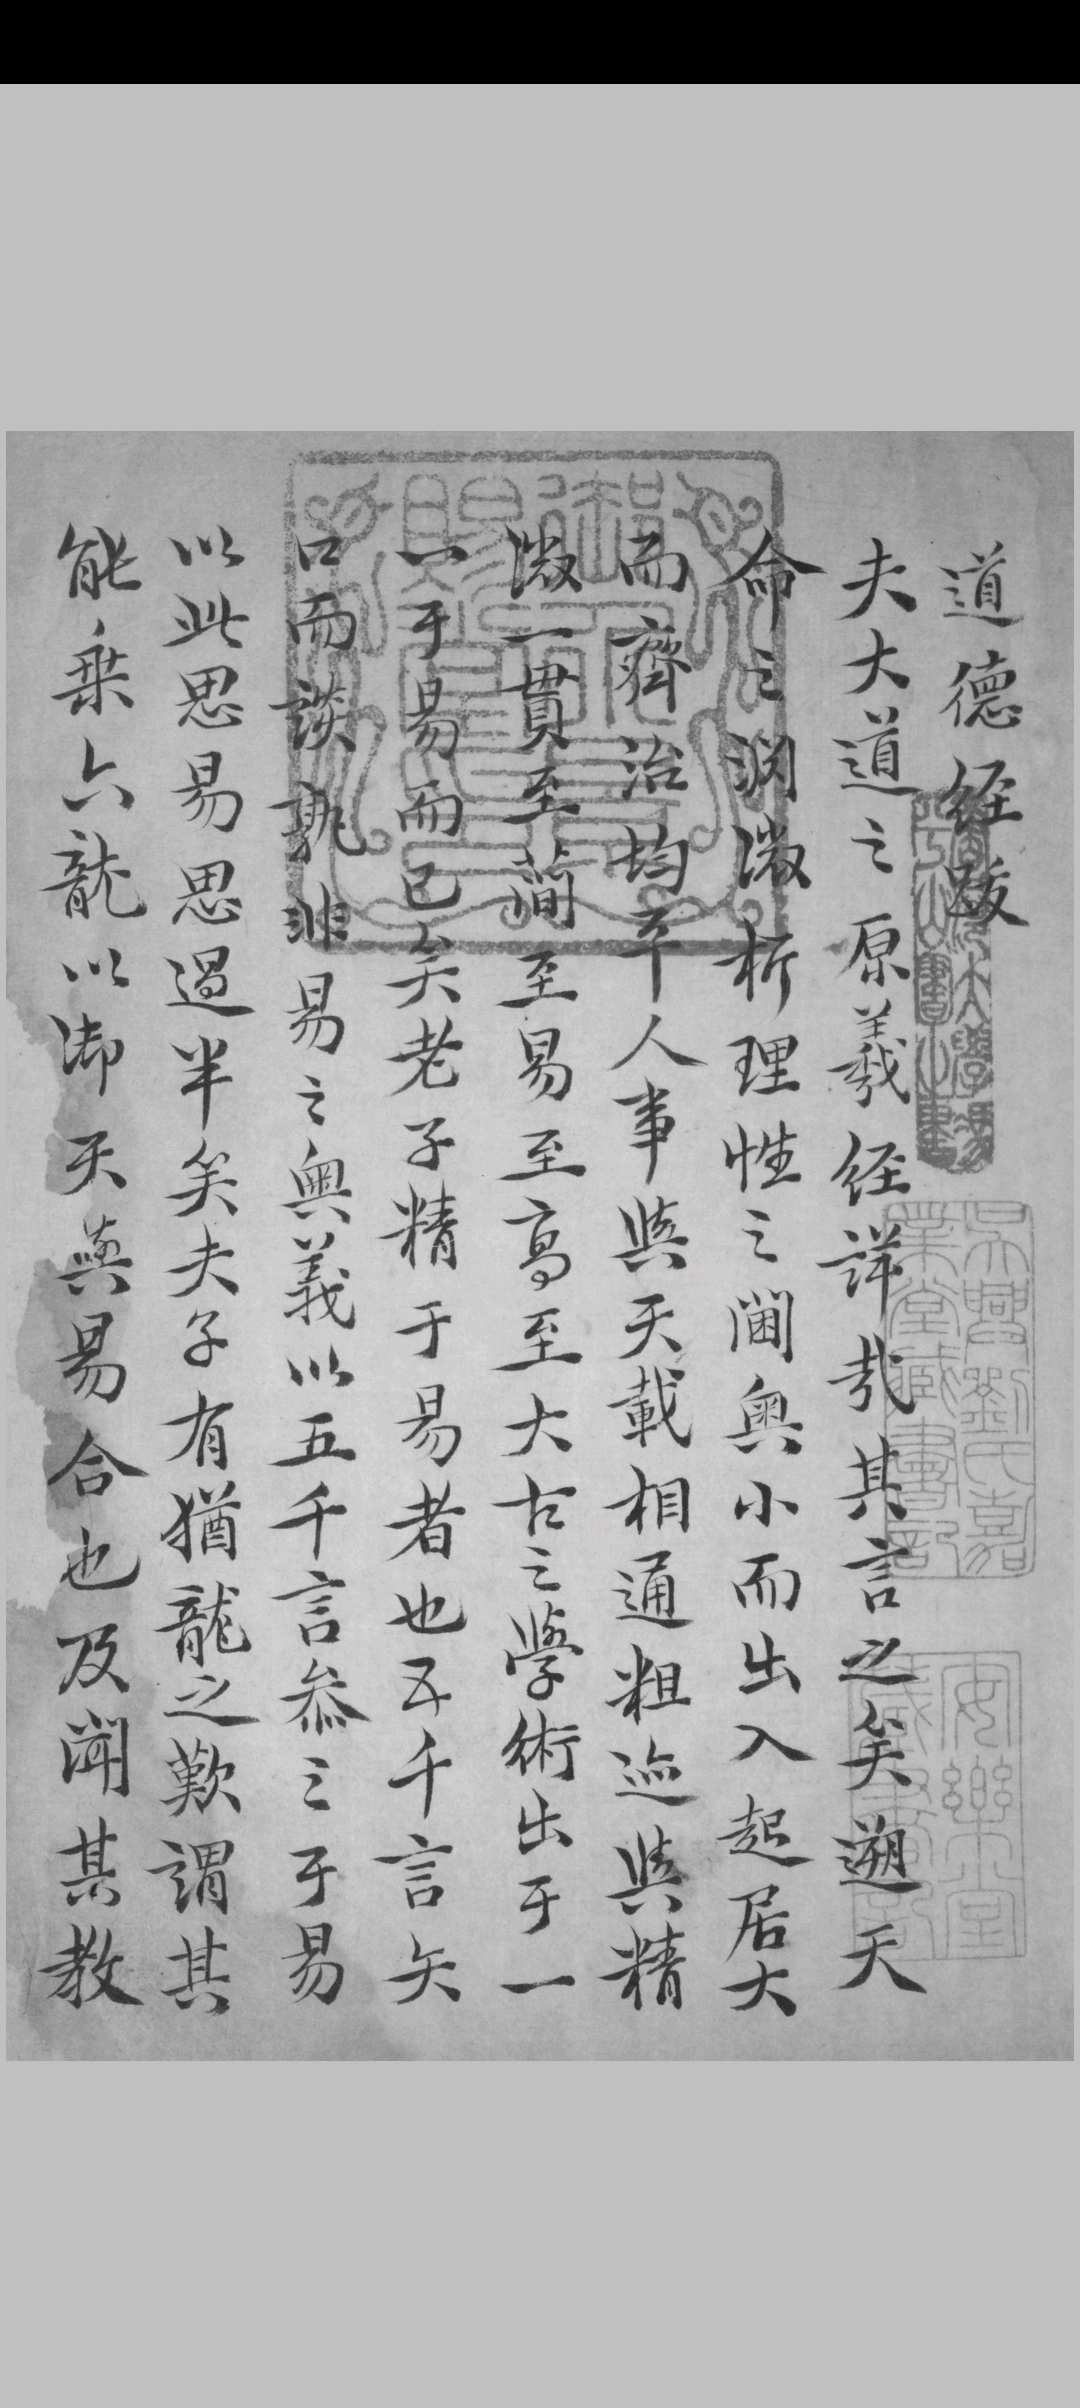 道德經跋
夫大道之原羲經詳哉其言之矣遡天
命之淵微析理性之閫奧小而出入起居大
而齊治均平人事與天載相通粗迹與精
微一貫至簡至易至高至大古之學術出于一
一于易而已矣老子精于易者也五千言矢
口而談孰非易之奧義以五千言叅之于易
以此思易思過半矣夫子有猶龍之歎謂其
能乗六龍以御天與易合也及聞其教
吳興劉氏嘉
業堂藏書記
安樂堂
藏書記